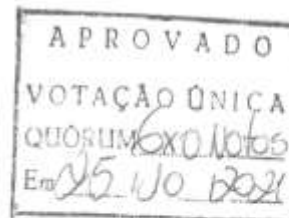 APROVADO
VOTAÇÃO ÚNICA
QUÓRUM 6x0 Votos
Em 25 / 10 / 2021